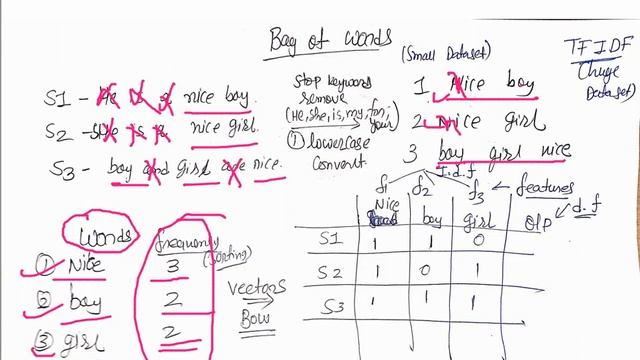 Bag of Words
(Small Dataset)
TFIDF
(huge
Dataset)
S1 - He is a nice boy.
S2 - She is a nice girl.
S3 - boy and girl are nice.
Stop keywords
remove
(He, she, is, my, for,
your)
① lowercase
Convert
1. Nice boy
2 Nice girl
3 boy girl nice
I.d.f
f1 f2 f3 ← features
Nice boy girl O/P d.f
S1 1 1 0
S2 1 0 1
S3 1 1 1
Words frequency
(Sorting)
① Nice 3
② boy 2
③ girl 2
Vectors
BOW